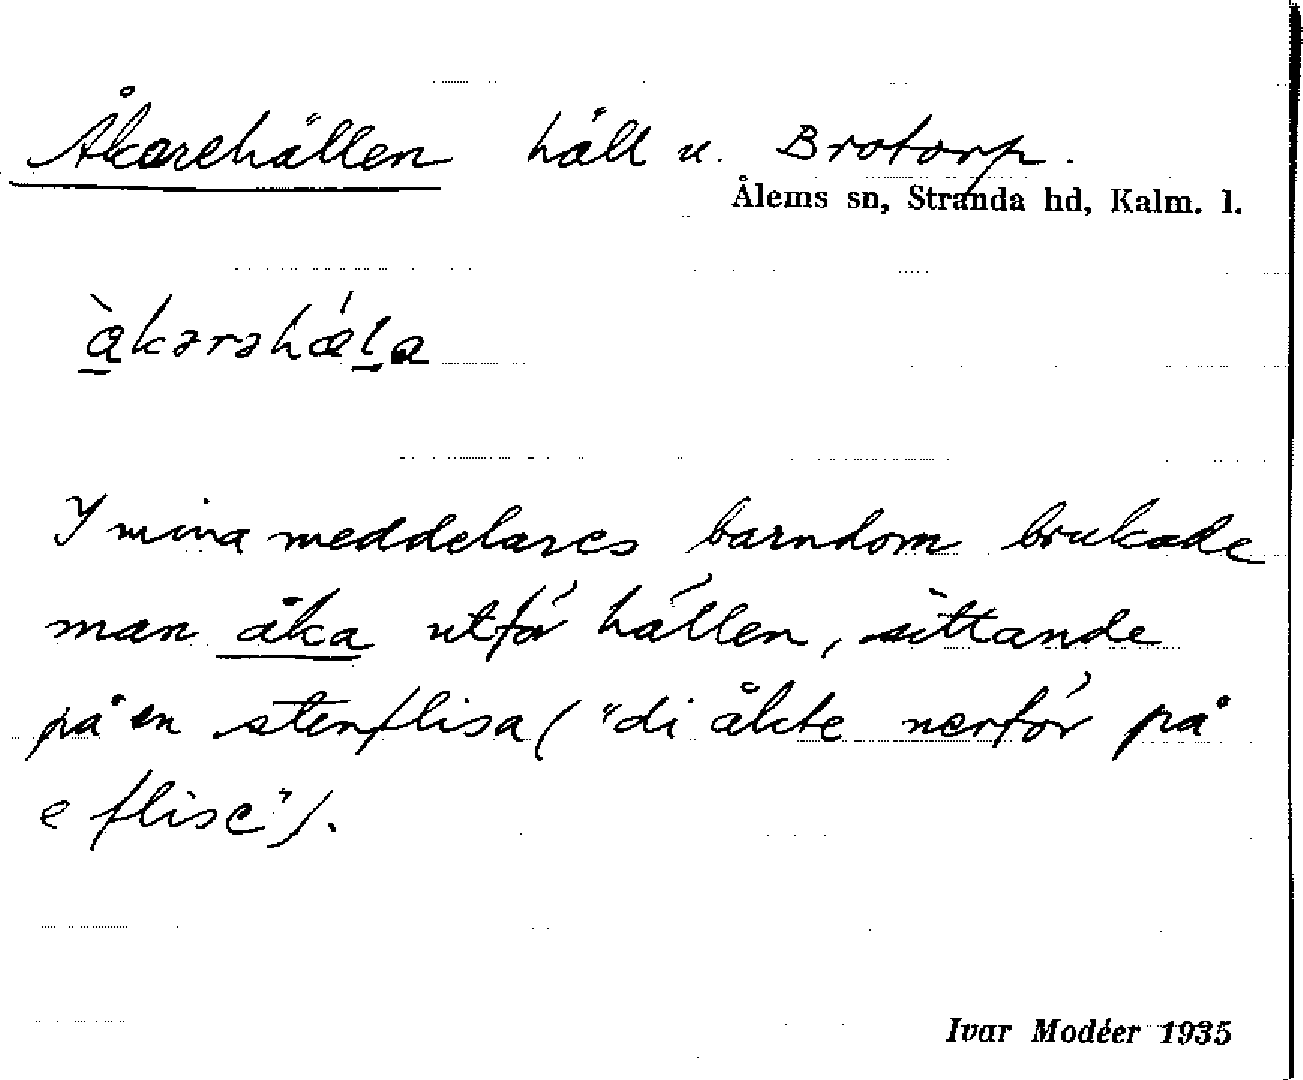 Åkarehällen häll u. Brotorp.
Ålems sn, Stranda hd, Kalm. l.
àkərəhǽla
I mina meddelares barndom brukade
man åka utför hällen, sittande
på en stenflisa ("di åkte nerför på
e flise").
Ivar Modéer 1935